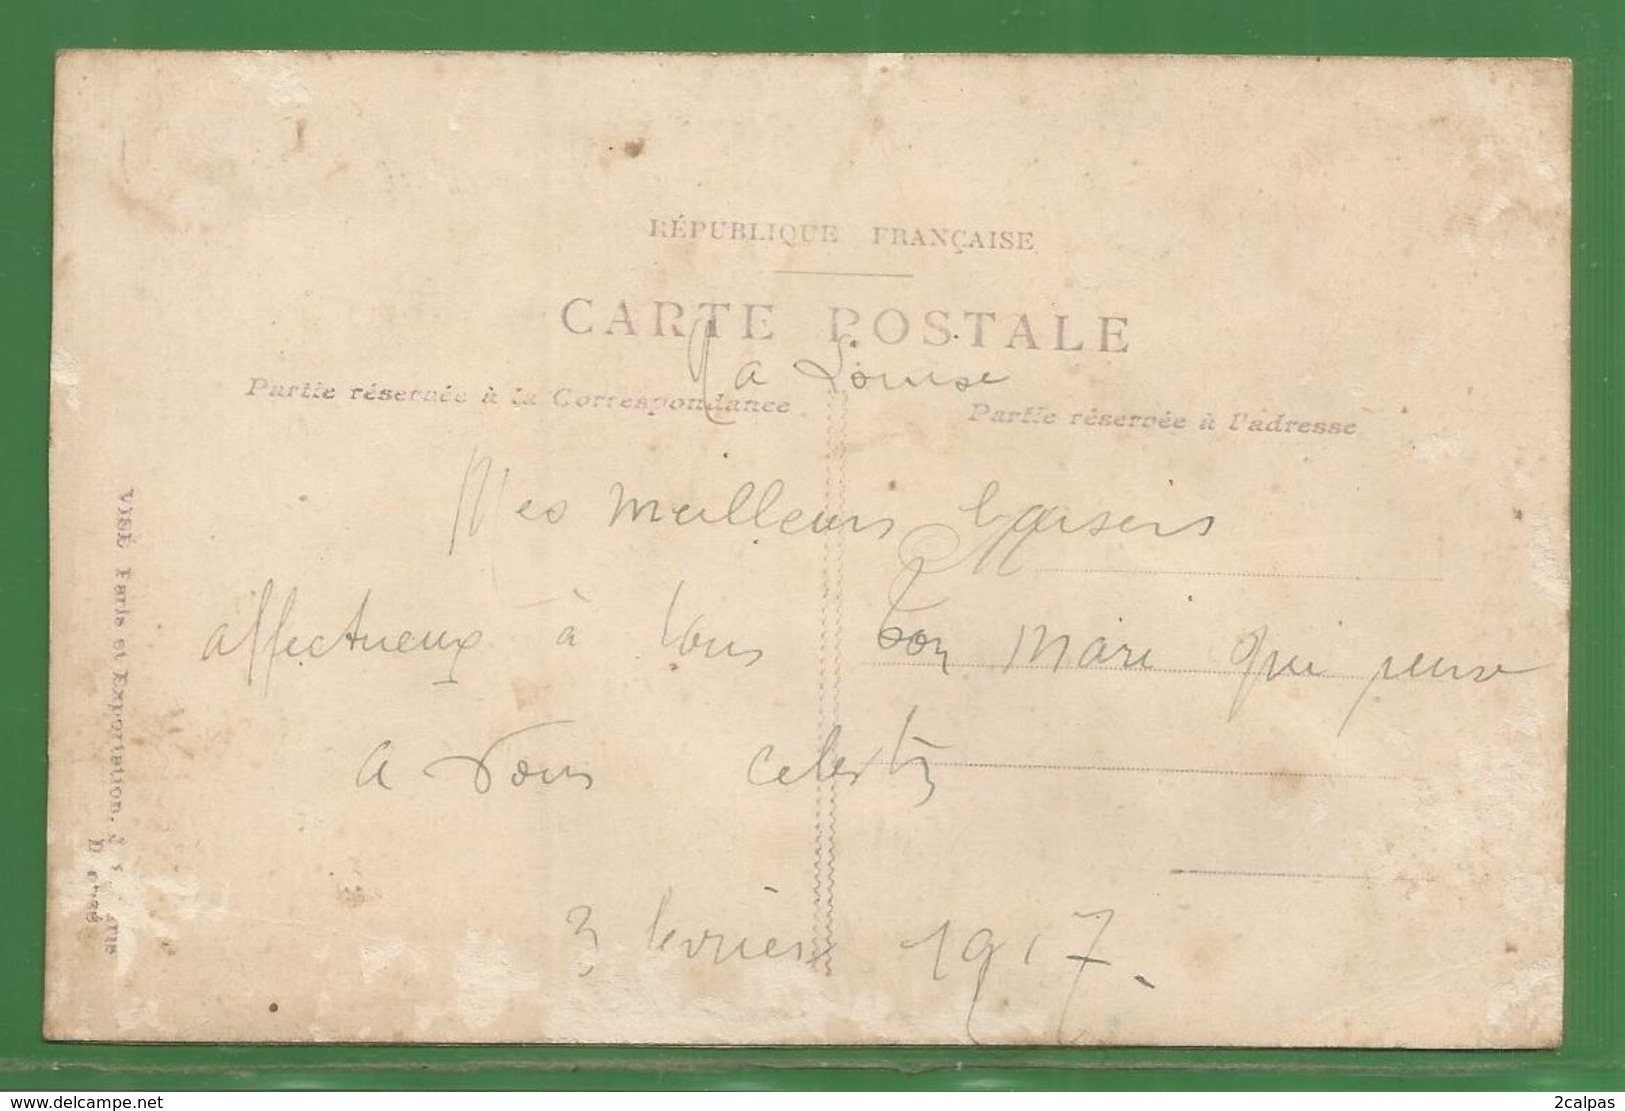 RÉPUBLIQUE FRANÇAISE
CARTE POSTALE
a Louise
Partie réservée à la Correspondance
Partie réservée à l'adresse
Mes meilleurs baisers
affectueux à tous ton mari qui pense
a vous celestin
3 fevrier 1917.
VISÉ Paris et Exportation.
www.delcampe.net
2calpas